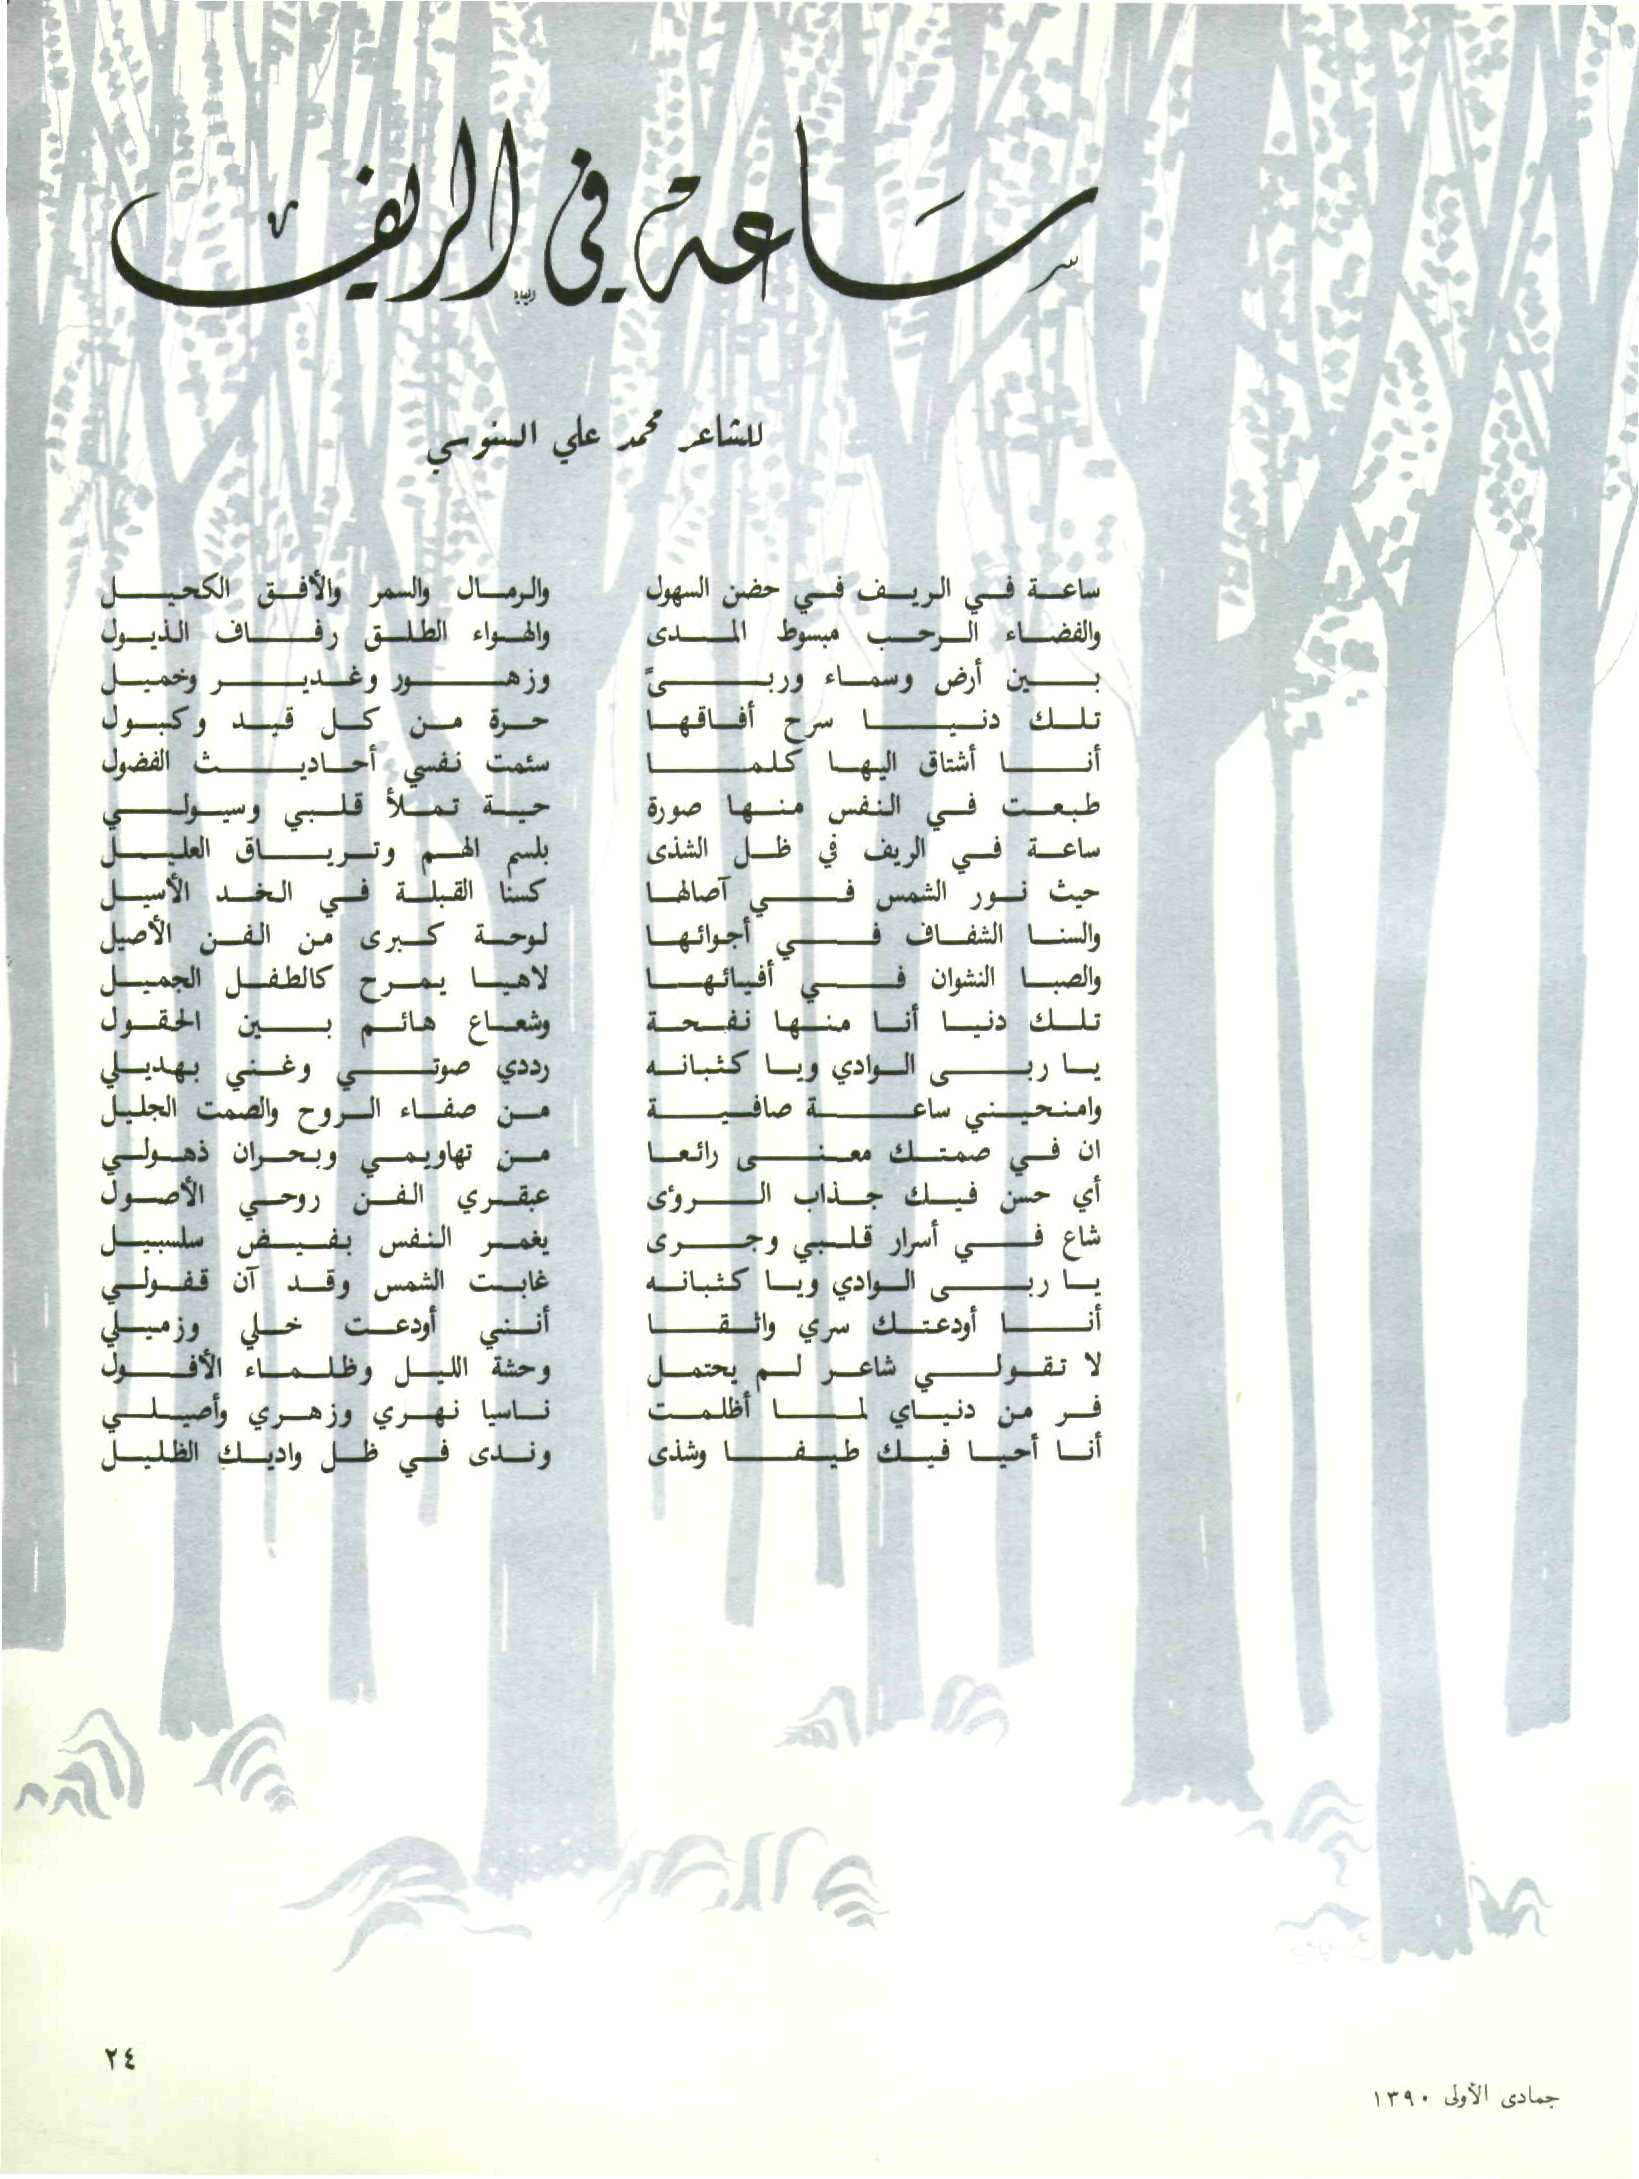 ساعة في الريف
للشاعر محمد علي السنوسي
ساعة في الريف في حضن السهول والرمال والسمر والأفق الكحيل
والفضاء الرحب مبسوط المدى والهواء الطلق رفاف الذيول
بين أرض وسماء وربىً وزهور وغدير وخميل
تلك دنيا سرح أفاقها حرة من كل قيد وكبول
أنا أشتاق اليها كلما سئمت نفسي أحاديث الفضول
طبعت في النفس منها صورة حية تملأ قلبي وسيولي
ساعة في الريف في ظل الشذى بلسم الهم وترياق العليل
حيث نور الشمس في آصالها كسنا القبلة في الخد الأسيل
والسنا الشفاف في أجوائها لوحة كبرى من الفن الأصيل
والصبا النشوان في أفيائها لاهيا يمرح كالطفل الجميل
تلك دنيا أنا منها نفحة وشعاع هائم بين الحقول
يا ربى الوادي ويا كثبانه رددي صوتي وغني بهديلي
وامنحيني ساعة صافية من صفاء الروح والصمت الجليل
ان في صمتك معنى رائعا من تهاويمي وبحران ذهولي
أي حسن فيك جذاب الرؤى عبقري الفن روحي الأصول
شاع في أسرار قلبي وجرى يغمر النفس بفيض سلسبيل
يا ربى الوادي ويا كثبانه غابت الشمس وقد آن قفولي
أنا أودعتك سري واثقا أنني أودعت خلي وزميلي
لا تقولي شاعر لم يحتمل وحشة الليل وظلماء الأفول
فر من دنياي لما أظلمت ناسيا نهري وزهري وأصيلي
أنا أحيا فيك طيفا وشذى وندى في ظل واديك الظليل
٢٤
جمادى الأولى ١٣٩٠